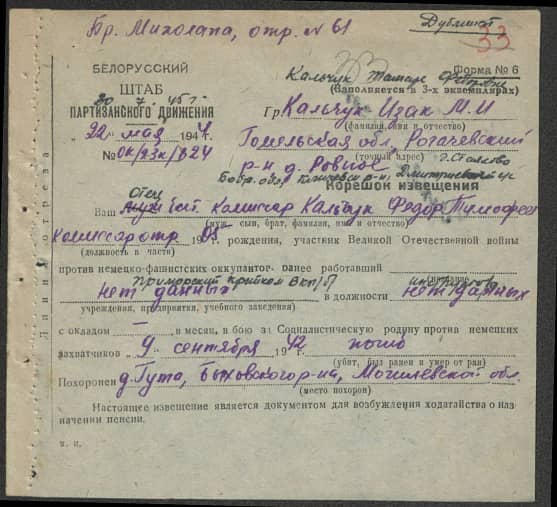 Дубликат
Бр. Михолапа, отр. № 61
33
БЕЛОРУССКИЙ
ШТАБ
ПАРТИЗАНСКОГО ДВИЖЕНИЯ
20 7 45 г.
„22 мая 1944
№ ок/93к/824
Форма № 6
Кальчук Тамаре
(Заполняется в 3-х экземплярах)
Гр. Кальчук Изак М.И
(фамилия, имя и отчество)
Гомельская обл, Рогачевский
(точный адрес)
р-н д. Ровное
Бобр. обл.
Корешок извещения
Отец
Ваш муж бат. комиссар Кальчук Федор Тимофее
(муж, сын, брат, фамилия, имя и отчество)
комиссар отр. 1905 рождения, участник Великой Отечественной войны
(должность в части)
против немецко-фашистских оккупантов ранее работавший
(название
Приморский крайком ВКП/б/
инструктор
нет данных в должности нет данных
учреждения, предприятия, учебного заведения)
с окладом — в месяц, в бою за Социалистическую родину против немецких
захватчиков „9 сентября 1942 погиб
(убит, был ранен и умер от ран)
Похоронен д. Гута, Быховского р-на, Могилевской обл.
(место похорон)
Настоящее извещение является документом для возбуждения ходатайства о наз-
начении пенсии.
м. п.
Линия отреза